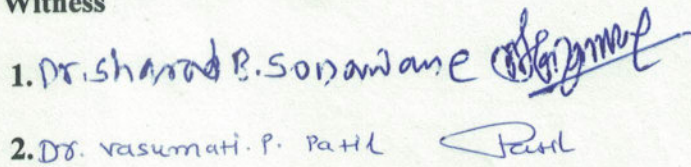 Witness
1. Dr. Sharad B. Sonawane
2. Dr. Vasumati. P. Patil Patil